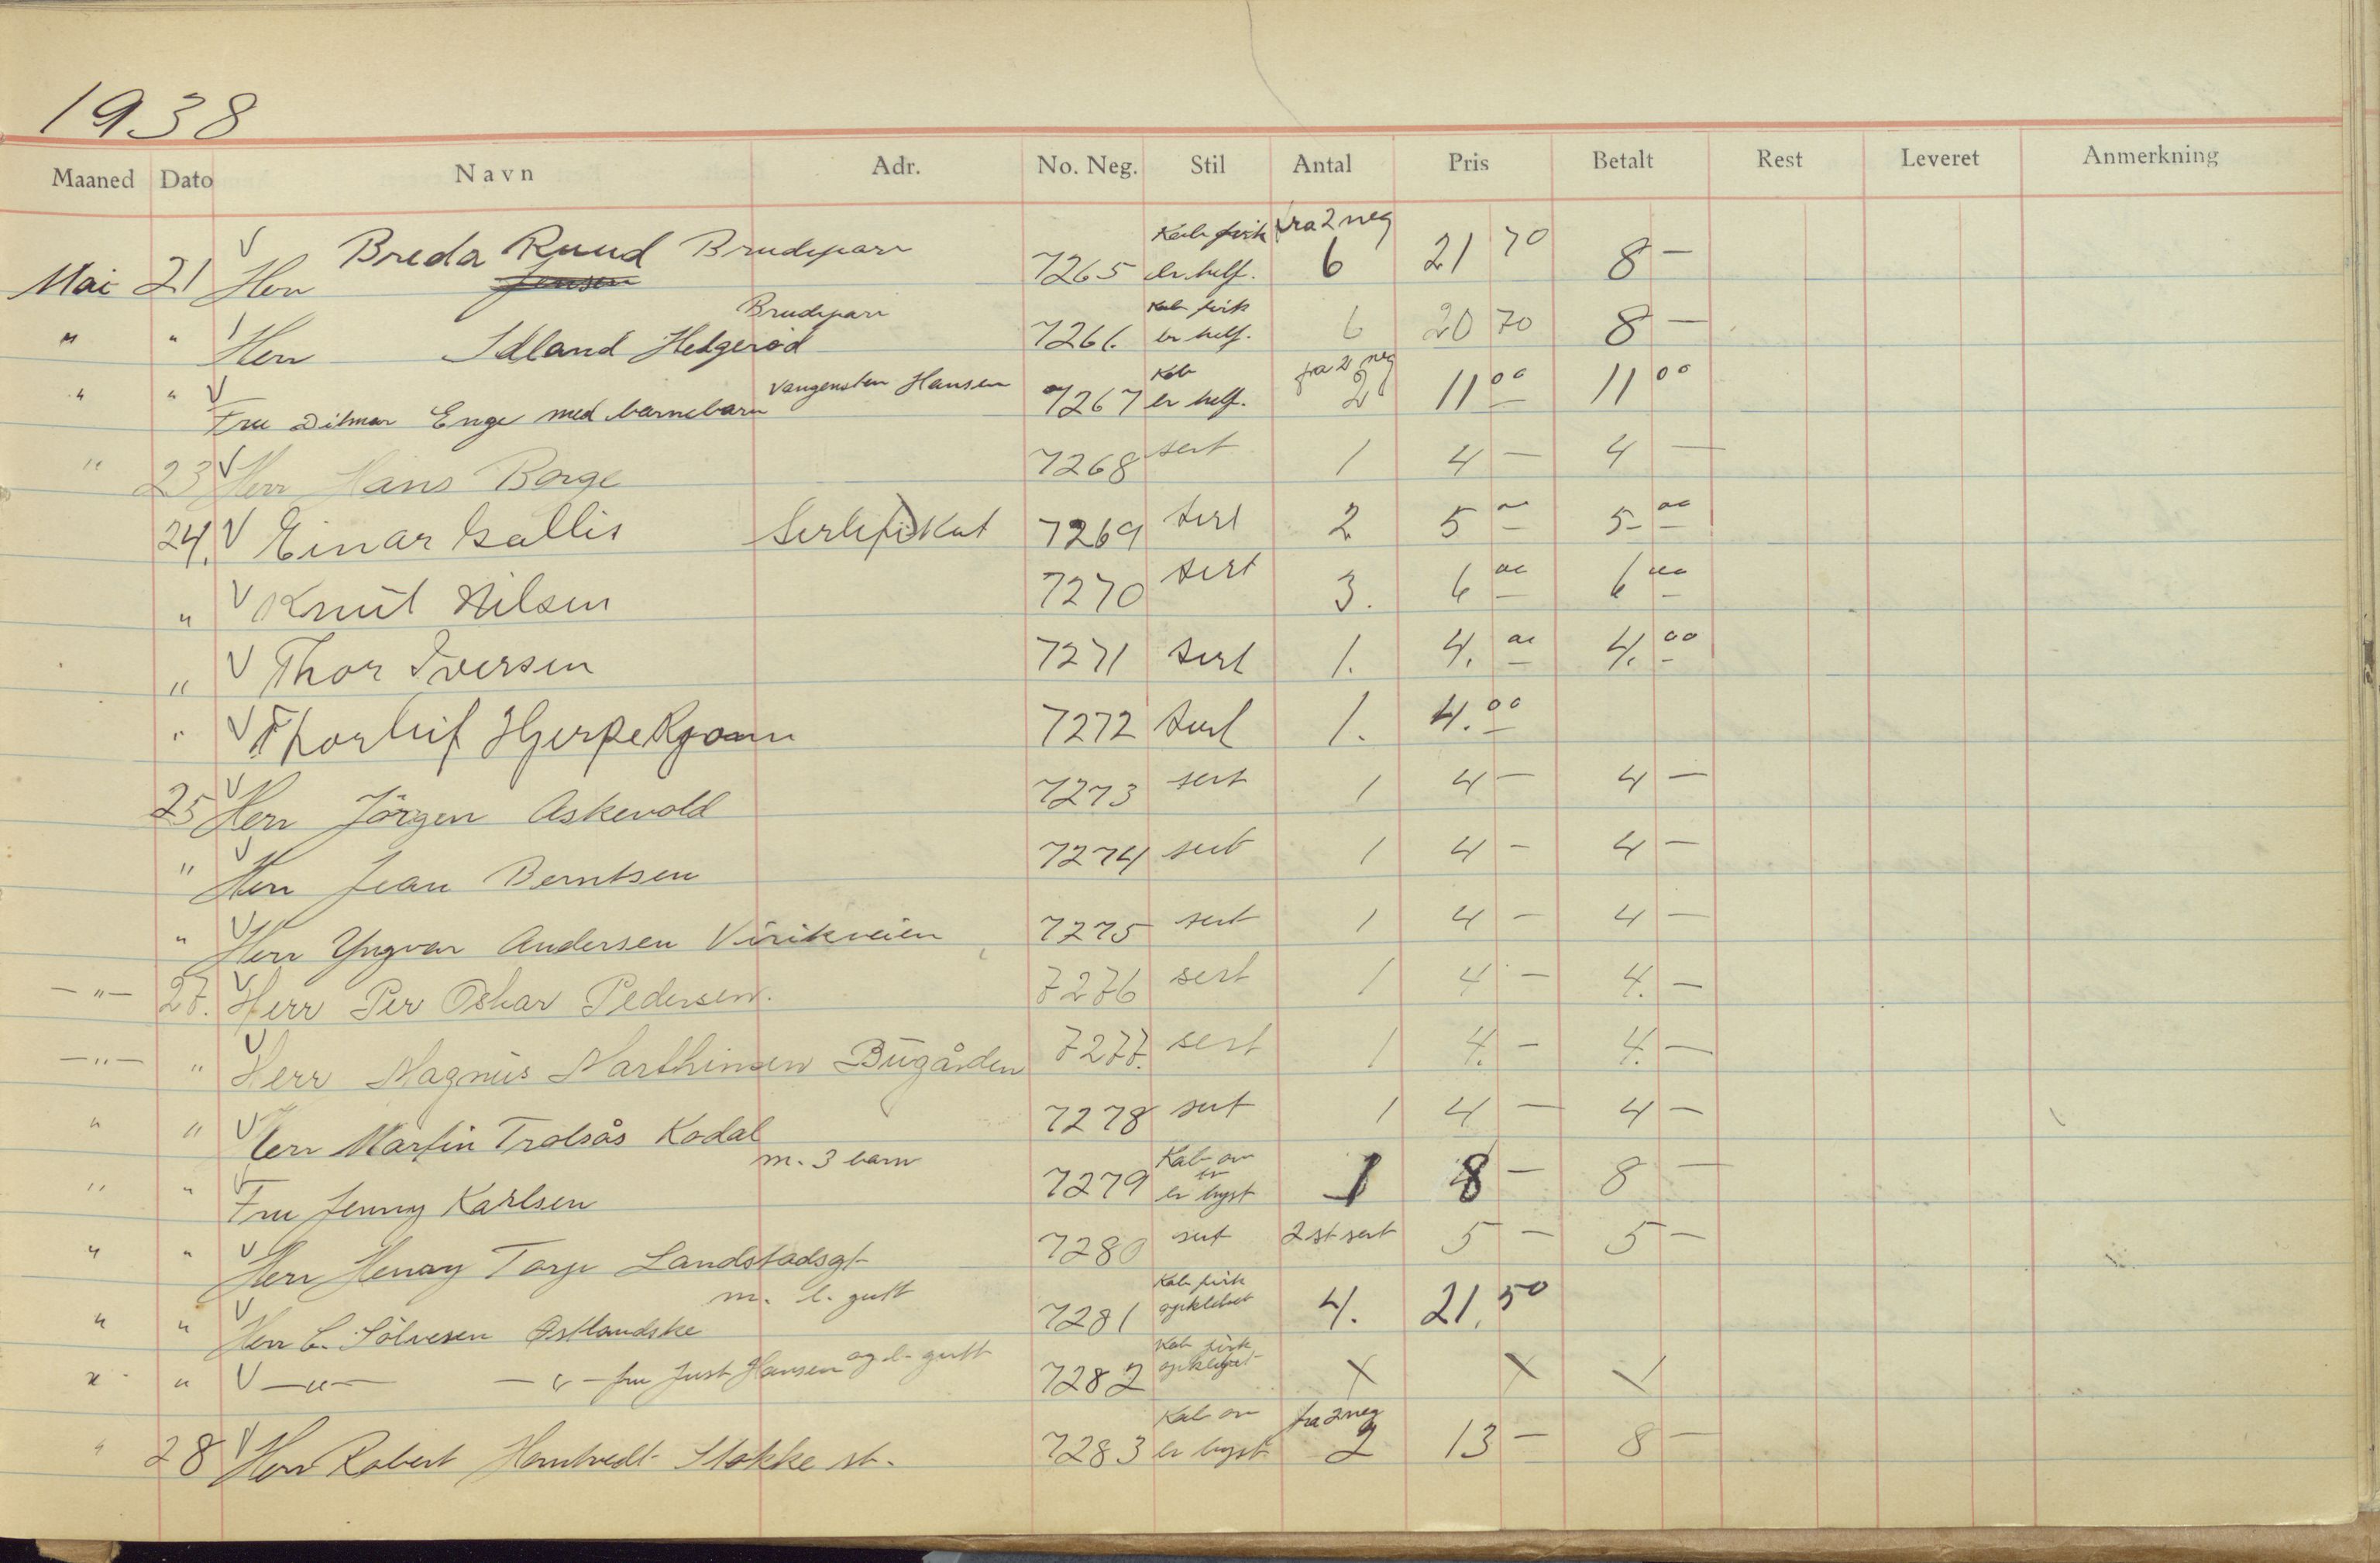 1938
Maaned Dato Navn Adr. No. Neg. Stil Antal Pris Betalt Rest Leveret Anmerkning
Mai 21 V Herr Breda Ruud Jensen Brudepar 7265 Kab fra 2 neg er. helf. 6 21 70 8 —
" " V Herr Idland Helgerød Brudepar 7266. Kab er helf. 6 20 70 8 —
" " V Fru Ditmar Enge med barnebarn Vangensten Hansen 7267 Kab er helf. fra 2 neg 2 11 00 11 00
" 23 V Herr Hans Borge 7268 sert 1 4 — 4 —
24. V Einar Gallis Sertifikat 7269 sert 2 5 00 5 00
" V Knut Nilsen 7270 sert 3. 6 00 6 00
" V Thor Iversen 7271 sert 1. 4. 00 4. 00
" V Thorleif Hjerpekjønn 7272 sert 1. 4. 00
25 V Herr Jörgen Askevold 7273 sert 1 4 — 4 —
" V Herr Jean Berntsen 7274 sert 1 4 — 4 —
" V Herr Yngvar Andersen Virikveien 7275 sert 1 4 — 4 —
— " — 27. V Herr Per Oskar Pedersen. 7276 sert 1 4 — 4. —
— " — " V Herr Magnus Marthinsen Bugården 7277. sert 1 4. — 4. —
" " V Herr Martin Trolsås Kodal 7278 sert 1 4 — 4 —
" " V Fru Jenny Karlsen m. 3 barn 7279 Kab er bryst 1 8 — 8 —
" " V Herr Henry Torp Landstadsgt 7280 sert 2 st sert 5 — 5 —
" " V Herr C. Sölvesen Østlandske m. l. gutt 7281 Kab opklebet 4. 21. 50
" " V — " — — " — fru Just Hansen og l. gutt 7282 Kab opklebet X X X
" 28 V Herr Robert Homtvedt Stokke st. 7283 Kab er bryst fra 2 neg 2 13 — 8 —